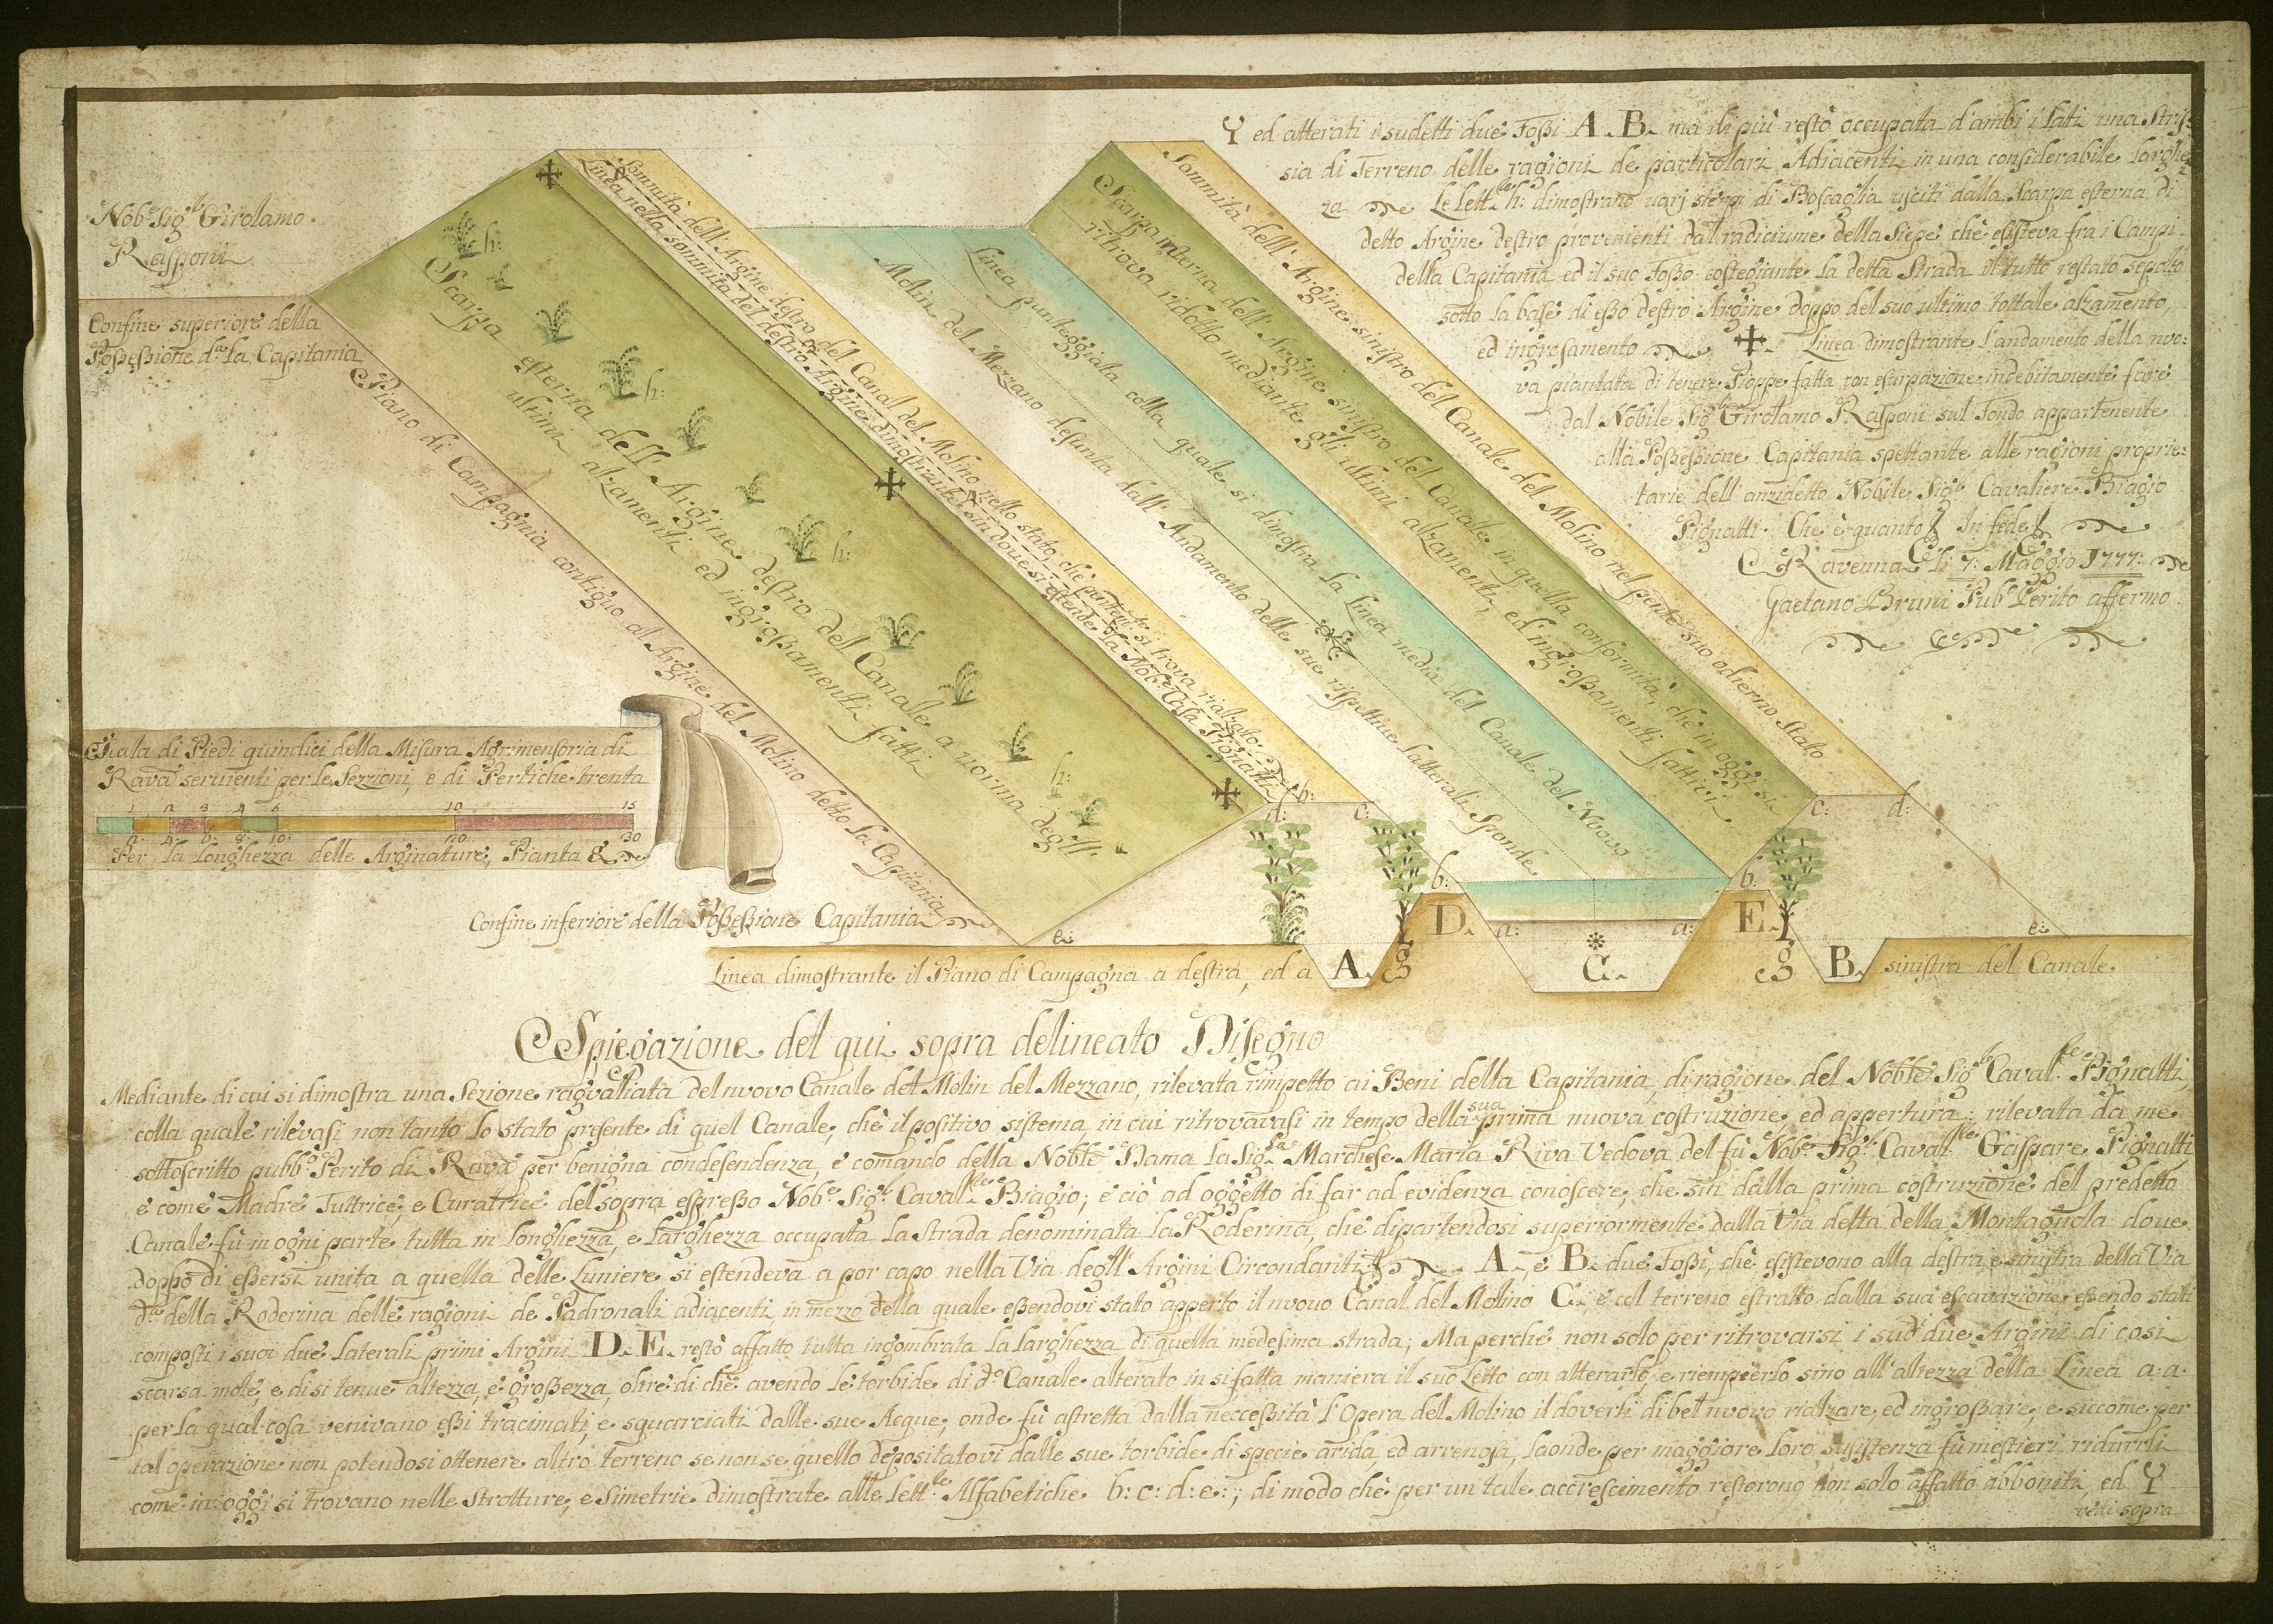 Nob.e Sig.r Girolamo
Rasponi
Confine superiore della
Possessione d.a la Capitania
Piano di Campagnia contiguo al Argine del Molino detto la Capitania
Scarpa esterna dell' Argine destro del Canale a norma degl'
ultimi alzamenti ed ingrossamenti fatti
h:
h:
h:
h:
Sommità dell' Argine destro del Canal del Molino nello stato, chè si trova rialzato
Linea nella sommità del destro Argine dimostrante sin doue si estende la Nob.e Casa Pignatti
Molin del Mezzano desunta dall' Andamento delle sue rispettiue latterali Sponde
Linea punteggiata colla quale si dimostra la Linea media del Canale del Nuovo
Scarpa interna dell' Argine sinistro del Canale in quella conformità, chè in oggi si
ritrova ridotto mediante gli ultimi alzamenti, ed ingrossamenti fattivi
Sommità dell' Argine sinistro del Canale del Molino nel presente suo odierno stato
Y ed atterati i sudetti due Fossi A. B. ma di più restò occupata d'ambi i lati una stri:
sia di Terreno delle ragioni de particolari Adiacenti in una considerabile larghez
za Le Lett.re h: dimostrano varj sterpi di Boscaglia usciti dalla Scarpa esterna di
detto Argine destro provenienti dal radiciume della Siepe chè esisteva fra i Campi
della Capitania ed il suo Fosso costegiante la detta Strada il tutto restato sepolto
sotto la base di esso destro Argine doppo del suo ultimo tottale alzamento,
ed ingrosamento ✠. Linea dimostrante l'andamento della nuo:
va piantata di tenere Pioppe fatta con esurpazione indebitamente fare
dal Nobile Sig.r Girolamo Rasponi sul Fondo appartenente
alla Possessione Capitania spettante alle ragioni proprie:
tarie dell' anzidetto Nobile Sig.r Cavaliere Biagio
Pignatti. Che è quanto In fede
Ravenna Li 7: Maggio 1777:
Gaetano Bruni Pub.o Perito affermo
Scala di Piedi quindici della Misura Agrimensoria di
Rava seruienti per le Sezzioni, e di Pertiche trenta
1 2 3 4 5 10 15
2. 4. 6. 8. 10. 20 30
Per la longhezza delle Arginature, Pianta &
Confine inferiore della Possessione Capitania
b: c: c: d:
d: b: b:
D. a: a: E.
e: e:
g g
Linea dimostrante il Piano di Campagna a destra, ed a A. C. B. sinistra del Canale
Spiegazione del qui sopra delineato Disegno
Mediante di cui si dimostra una Sezione ragvagliata del nuovo Canale del Molin del Mezzano, rilevata rimpetto ai Beni della Capitania, di ragione del Noble Sig.r Caval.re Pignatti,
colla quale rilevasi non tanto lo stato presente di quel Canale, chè il positivo sistema in cui ritrovavasi in tempo della sua prima nuova costruzione, ed appertura; rilevata da me
sottoscritto pubb.o Perito di Rava per benigna condesendenza, e comando della Noble Dama la Sig.ra Marchese Maria Riva Vedova del fù Nob.e Sig.r Caval.re Gaspare Pignatti,
e come Madre Tuttrice, e Curatrice del sopra espresso Nob.e Sig.r Caval.re Biagio; e ciò ad oggetto di far ad evidenza conoscere, che sin dalla prima costruzione del predetto
Canale fù in ogni parte tutta in longhezza, e larghezza occupata la strada denominata la Roderina, che dipartendosi superiormente dalla Via detta della Montagnola doue
doppo di essersi unita a quella delle Luniere si estendeva a por capo nella Via degll' Argini Circondanti A. e B. due Fossi, chè esistevono alla destra e sinistra della Via
d.a della Roderina delle ragioni de Padronali adiacenti in mezzo della quale essendovi stato apperto il nuouo Canal del Molino C., e col terreno estratto dalla sua escavazione essendo stati
composti i suoi due laterali primi Argini D. E. restò affatto tutta ingombrata la larghezza di quella medesima strada; Ma perchè non solo per ritrovarsi i sud.i due Argini di cosi
scarsa mole, e di si tenue altezza, e grossezza, oltre di chè avendo le torbide di d.o Canale alterato in si fatta maniera il suo Letto con atterarlo, e riempierlo sino all' altezza della Linea a. a.
per la qual cosa venivano essi tracimati, e squarciati dalle sue Acque; onde fù astretta dalla neccessità l'Opera del Molino il doverli di bel nuovo rialzare, ed ingrossare, e siccome per
tal operazione non potendosi ottenere altro terreno se non se quello depositatovi dalle sue torbide di specie arida, ed arrenosa, laonde per maggiore loro susistenza fù mestieri ridurrli
come in oggi si trovano nelle Strotture, e Simetrie dimostrate alle Lett.re Alfabetiche b: c: d: e:; di modo chè per un tale accrescimento restorono non solo affatto abboniti, ed Y
vedi sopra